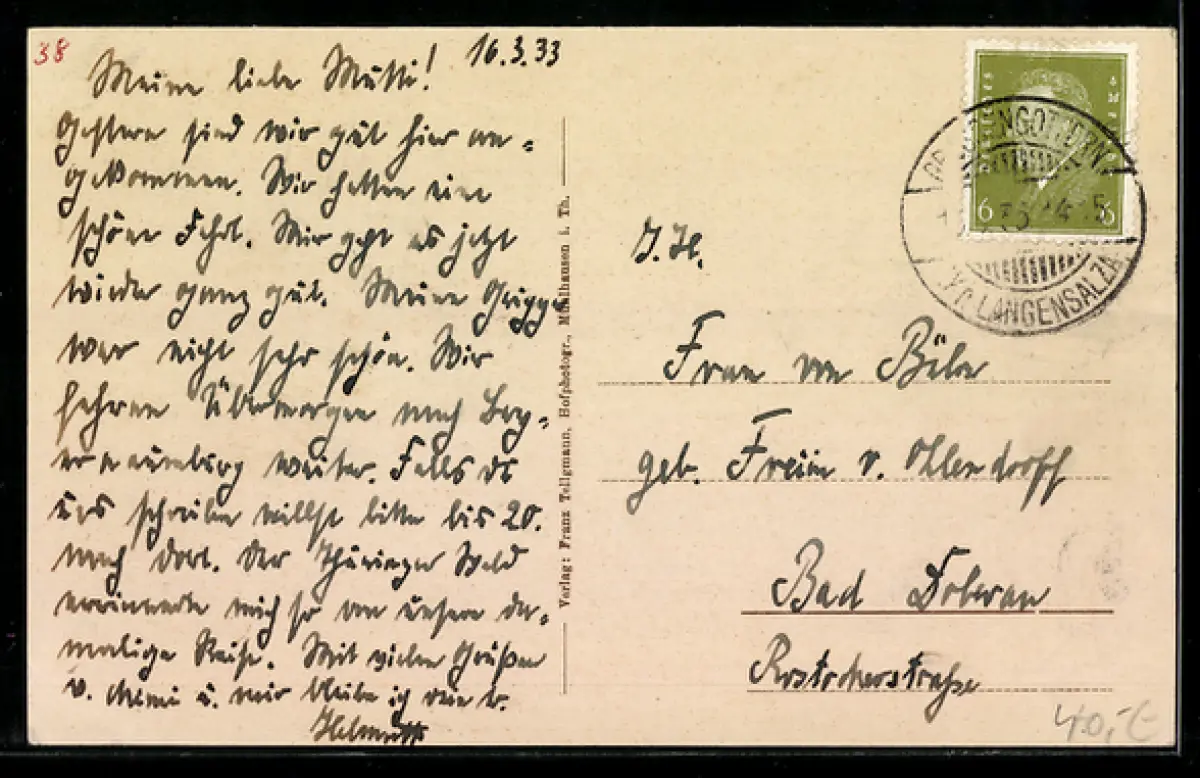 38
16.3.33
Meine liebe Mutti!
Gestern sind wir gut hier an=
gekommen. Wir hatten eine
schöne Fahrt. Mir geht es jetzt
wieder ganz gut. Meine Grippe
war nicht sehr schön. Wir
fahren Übermorgen nach
weiter. Falls du
uns schreiben willst bitte bis 20.
nach dort. Der Thüringer Wald
erinnerte mich so an unsere da=
malige Reise. Mit vielen Grüßen
v. Mimi u. mir bleibe ich dein tr.
Helmuth
Verlag: Franz Tellgmann, Hofphotogr., Mühlhausen i. Th.
6 6
LANGENSALZA
I. H.
Frau von
geb. Freiin v. Ohlendorff
Bad Doberan
Rostockerstraße
40,-€